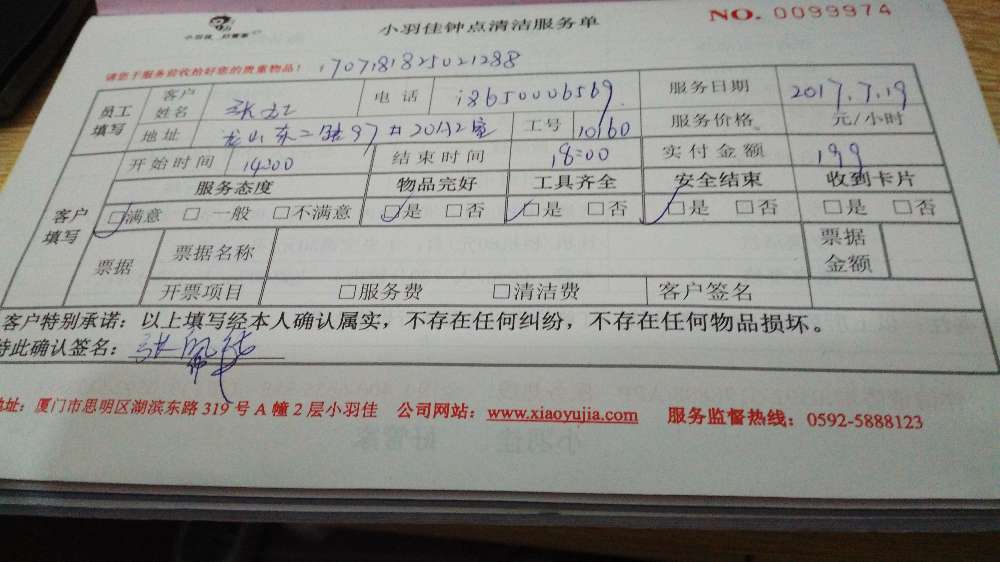 小羽佳 好管家
小羽佳钟点清洁服务单
NO. 0099974
请您于服务前收拾好您的贵重物品！ 1707181825021288
员工填写 客户姓名 电话 18650006569 服务日期 2017.7.19
地址 龙山东二路97 20A2室 工号 10160 服务价格 元/小时
开始时间 14:00 结束时间 18:00 实付金额 199
客户填写 服务态度 物品完好 工具齐全 安全结束 收到卡片
□满意 □一般 □不满意 □是 □否 □是 □否 □是 □否 □是 □否
票据 票据名称 票据金额
开票项目 □服务费 □清洁费 客户签名
客户特别承诺：以上填写经本人确认属实，不存在任何纠纷，不存在任何物品损坏。
特此确认签名：张
地址：厦门市思明区湖滨东路 319 号 A 幢 2 层小羽佳 公司网站：www.xiaoyujia.com 服务监督热线：0592-5888123